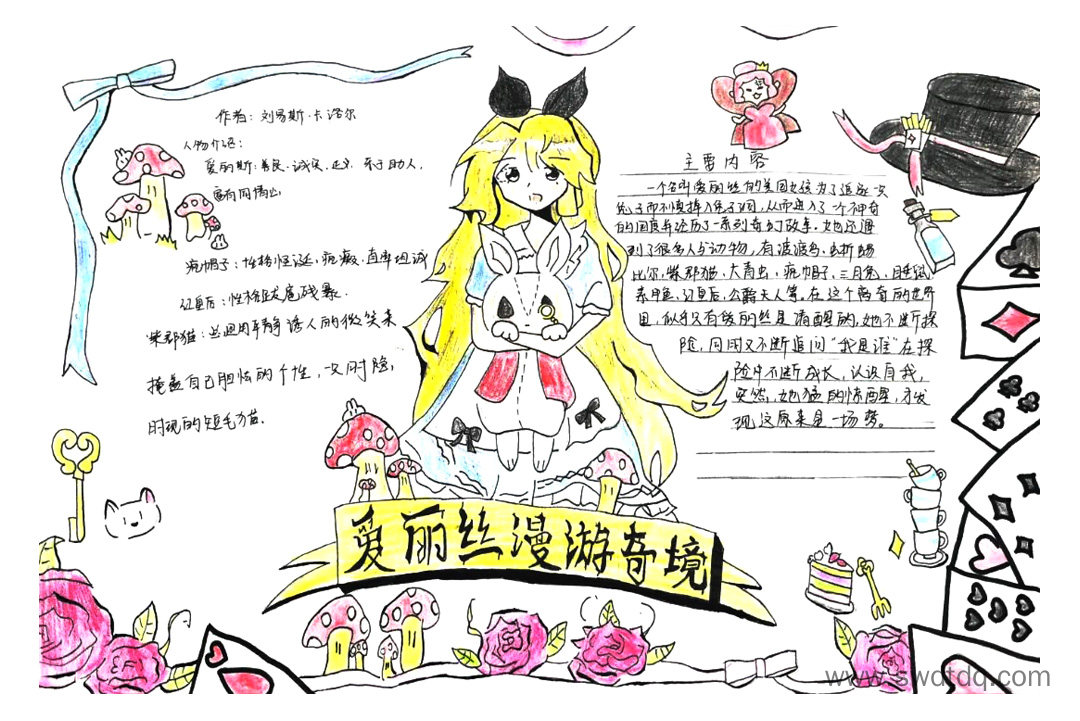 作者：刘易斯·卡洛尔
人物介绍：
爱丽斯：善良、诚实、正义、乐于助人、
富有同情心
疯帽子：性格怪诞，疯癫、直率坦诚
红皇后：性格残暴。
柴郡猫：总用诱人的微笑来
掩盖自己胆怯的个性，又时隐
时现的短毛猫。
主要内容
一个名叫爱丽丝的英国女孩为了追逐一只
兔子而不慎掉入兔子洞，从而进入了一个神奇
的国度并经历了一系列奇幻故事。她还遇
到了很多人与动物，有渡渡鸟、蜥蜴
比尔，柴郡猫、大青虫，疯帽子，三月兔，睡鼠，
素甲鱼，红皇后，公爵夫人等，在这个离奇的世界
里，似乎只有爱丽丝是清醒的，她不断探
险，同时又不断追问“我是谁”在探
险中不断成长，认识自我，
突然，她猛的惊醒，才发
现这原来是一场梦。
爱丽丝漫游奇境
www.swdtdq.com